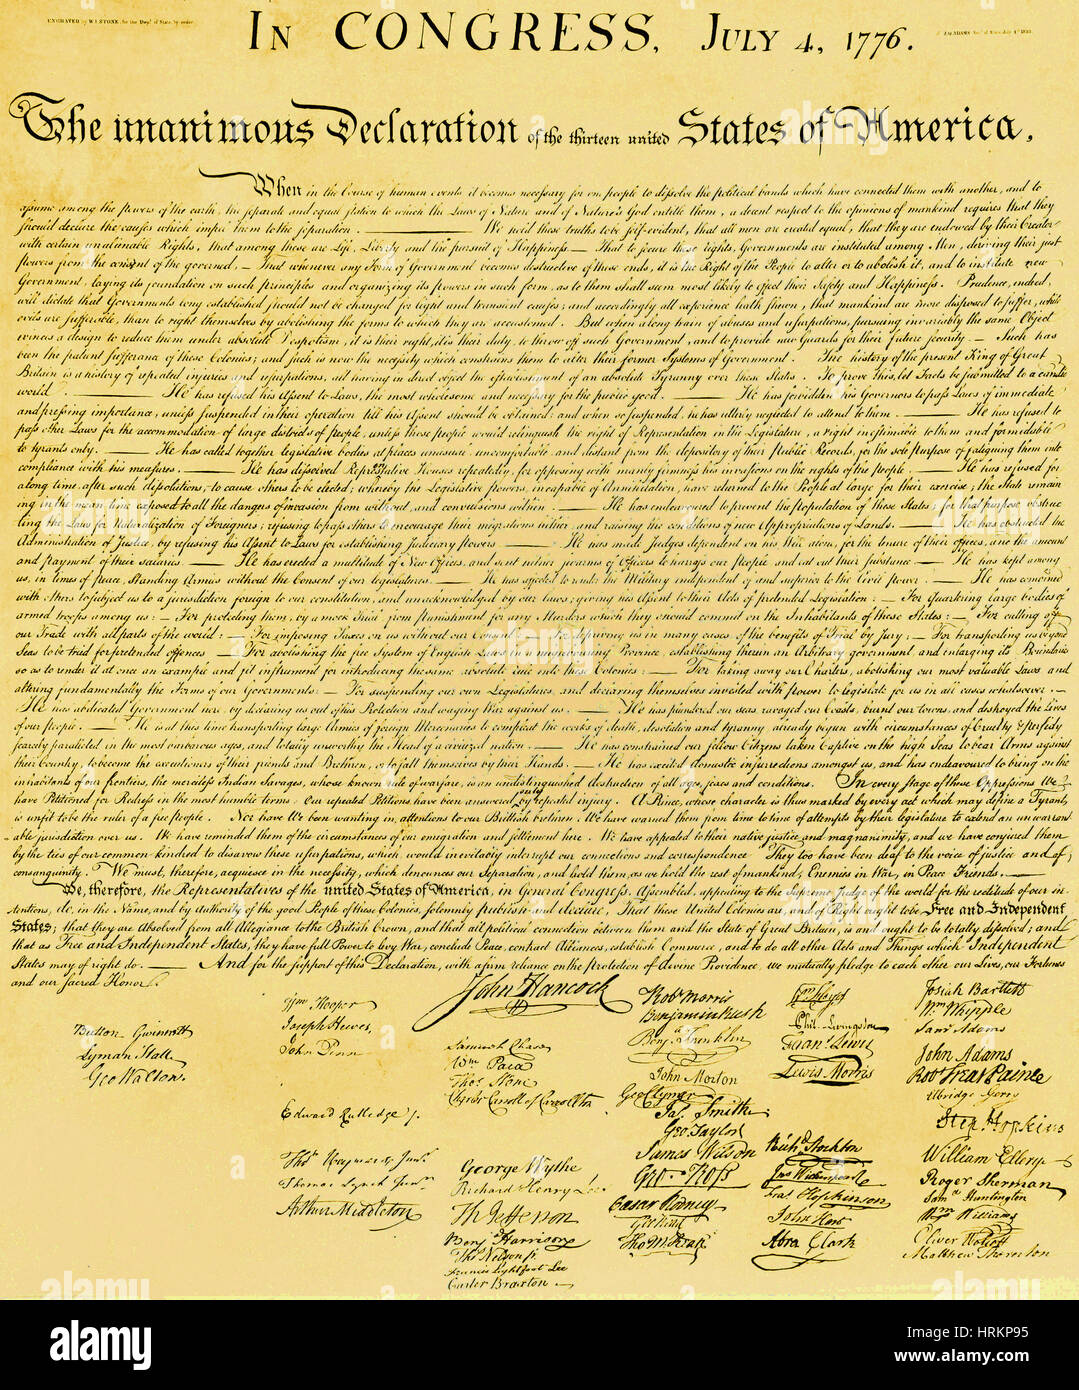 ENGRAVED by W.I. STONE, for the Dept. of State, by order
In CONGRESS, July 4, 1776.
The unanimous Declaration of the thirteen united States of America,
When in the Course of human events it becomes necessary for one people to dissolve the political bands which have connected them with another, and to
assume among the powers of the earth, the separate and equal station to which the Laws of Nature and of Nature's God entitle them, a decent respect to the opinions of mankind requires that they
should declare the causes which impel them to the separation. — We hold these truths to be self-evident, that all men are created equal, that they are endowed by their Creator
with certain unalienable Rights, that among these are Life, Liberty and the pursuit of Happiness — That to secure these rights, Governments are instituted among Men, deriving their just
powers from the consent of the governed, — That whenever any Form of Government becomes destructive of these ends, it is the Right of the People to alter or to abolish it, and to institute new
Government, laying its foundation on such principles and organizing its powers in such form, as to them shall seem most likely to effect their Safety and Happiness. Prudence, indeed,
will dictate that Governments long established should not be changed for light and transient causes; and accordingly all experience hath shewn, that mankind are more disposed to suffer, while
evils are sufferable, than to right themselves by abolishing the forms to which they are accustomed. But when a long train of abuses and usurpations, pursuing invariably the same Object
evinces a design to reduce them under absolute Despotism, it is their right, it is their duty, to throw off such Government, and to provide new Guards for their future security. — Such has
been the patient sufferance of these Colonies; and such is now the necessity which constrains them to alter their former Systems of Government. The history of the present King of Great
Britain is a history of repeated injuries and usurpations, all having in direct object the establishment of an absolute Tyranny over these States. To prove this, let Facts be submitted to a candid
world. — He has refused his Assent to Laws, the most wholesome and necessary for the public good. — He has forbidden his Governors to pass Laws of immediate
and pressing importance, unless suspended in their operation till his Assent should be obtained; and when so suspended, he has utterly neglected to attend to them. — He has refused to
pass other Laws for the accommodation of large districts of people, unless those people would relinquish the right of Representation in the Legislature, a right inestimable to them and formidable
to tyrants only. — He has called together legislative bodies at places unusual, uncomfortable, and distant from the depository of their Public Records, for the sole purpose of fatiguing them into
compliance with his measures. — He has dissolved Representative Houses repeatedly, for opposing with manly firmness his invasions on the rights of the people. — He has refused for
a long time, after such dissolutions, to cause others to be elected; whereby the Legislative powers, incapable of Annihilation, have returned to the People at large for their exercise; the State remain
ing in the mean time exposed to all the dangers of invasion from without, and convulsions within. — He has endeavoured to prevent the population of these States; for that purpose obstruc
ting the Laws for Naturalization of Foreigners; refusing to pass others to encourage their migrations hither, and raising the conditions of new Appropriations of Lands. — He has obstructed the
Administration of Justice, by refusing his Assent to Laws for establishing Judiciary powers. — He has made Judges dependent on his Will alone, for the tenure of their offices, and the amount
and payment of their salaries. — He has erected a multitude of New Offices, and sent hither swarms of Officers to harrass our People, and eat out their substance. — He has kept among
us, in times of peace, Standing Armies without the Consent of our legislatures. — He has affected to render the Military independent of and superior to the Civil power. — He has combined
with others to subject us to a jurisdiction foreign to our constitution, and unacknowledged by our laws; giving his Assent to their Acts of pretended Legislation: — For Quartering large bodies of
armed troops among us: — For protecting them, by a mock Trial, from punishment for any Murders which they should commit on the Inhabitants of these States: — For cutting off
our Trade with all parts of the world: — For imposing Taxes on us without our Consent: — For depriving us in many cases, of the benefits of Trial by Jury: — For transporting us beyond
Seas to be tried for pretended offences — For abolishing the free System of English Laws in a neighbouring Province, establishing therein an Arbitrary government, and enlarging its Boundaries
so as to render it at once an example and fit instrument for introducing the same absolute rule into these Colonies: — For taking away our Charters, abolishing our most valuable Laws, and
altering fundamentally the Forms of our Governments: — For suspending our own Legislatures, and declaring themselves invested with power to legislate for us in all cases whatsoever. —
He has abdicated Government here, by declaring us out of his Protection and waging War against us. — He has plundered our seas, ravaged our Coasts, burnt our towns, and destroyed the Lives
of our people. — He is at this time transporting large Armies of foreign Mercenaries to compleat the works of death, desolation and tyranny, already begun with circumstances of Cruelty & perfidy
scarcely paralleled in the most barbarous ages, and totally unworthy the Head of a civilized nation. — He has constrained our fellow Citizens taken Captive on the high Seas to bear Arms against
their Country, to become the executioners of their friends and Brethren, or to fall themselves by their Hands. — He has excited domestic insurrections amongst us, and has endeavoured to bring on the
inhabitants of our frontiers, the merciless Indian Savages, whose known rule of warfare, is an undistinguished destruction of all ages, sexes and conditions. In every stage of these Oppressions We
have Petitioned for Redress in the most humble terms: Our repeated Petitions have been answered only by repeated injury. A Prince, whose character is thus marked by every act which may define a Tyrant,
is unfit to be the ruler of a free people. Nor have We been wanting in attentions to our Brittish brethren. We have warned them from time to time of attempts by their legislature to extend an unwarrant
able jurisdiction over us. We have reminded them of the circumstances of our emigration and settlement here. We have appealed to their native justice and magnanimity, and we have conjured them
by the ties of our common kindred to disavow these usurpations, which, would inevitably interrupt our connections and correspondence. They too have been deaf to the voice of justice and of
consanguinity. We must, therefore, acquiesce in the necessity, which denounces our Separation, and hold them, as we hold the rest of mankind, Enemies in War, in Peace Friends. —
We, therefore, the Representatives of the united States of America, in General Congress, Assembled, appealing to the Supreme Judge of the world for the rectitude of our in
tentions, do, in the Name, and by Authority of the good People of these Colonies, solemnly publish and declare, That these United Colonies are, and of Right ought to be Free and Independent
States; that they are Absolved from all Allegiance to the British Crown, and that all political connection between them and the State of Great Britain, is and ought to be totally dissolved; and
that as Free and Independent States, they have full Power to levy War, conclude Peace, contract Alliances, establish Commerce, and to do all other Acts and Things which Independent
States may of right do. — And for the support of this Declaration, with a firm reliance on the protection of divine Providence, we mutually pledge to each other our Lives, our Fortunes
and our Sacred Honor.
Button Gwinnett
Lyman Hall
Geo Walton.
Wm Hooper
Joseph Hewes,
John Penn
Edward Rutledge /.
Thos Heyward Junr.
Thomas Lynch Junr.
Arthur Middleton
John Hancock
Samuel Chase
Wm Paca
Thos Stone
Charles Carroll of Carrollton
George Wythe
Richard Henry Lee
Th Jefferson
Benj Harrison
Thos Nelson jr.
Francis Lightfoot Lee
Carter Braxton
Robt Morris
Benjamin Rush
Benj. Franklin
John Morton
Geo Clymer
Jas. Smith
Geo. Taylor
James Wilson
Geo. Ross
Caesar Rodney
Geo Read
Tho M:Kean
Wm Floyd
Phil. Livingston
Frans. Lewis
Lewis Morris
Richd. Stockton
Jno Witherspoon
Fras. Hopkinson
John Hart
Abra Clark
Josiah Bartlett
Wm. Whipple
Saml Adams
John Adams
Robt Treat Paine
Elbridge Gerry
Step. Hopkins
William Ellery
Roger Sherman
Saml Huntington
Wm. Williams
Oliver Wolcott
Matthew Thornton
alamy
Image ID: HRKP95
www.alamy.com